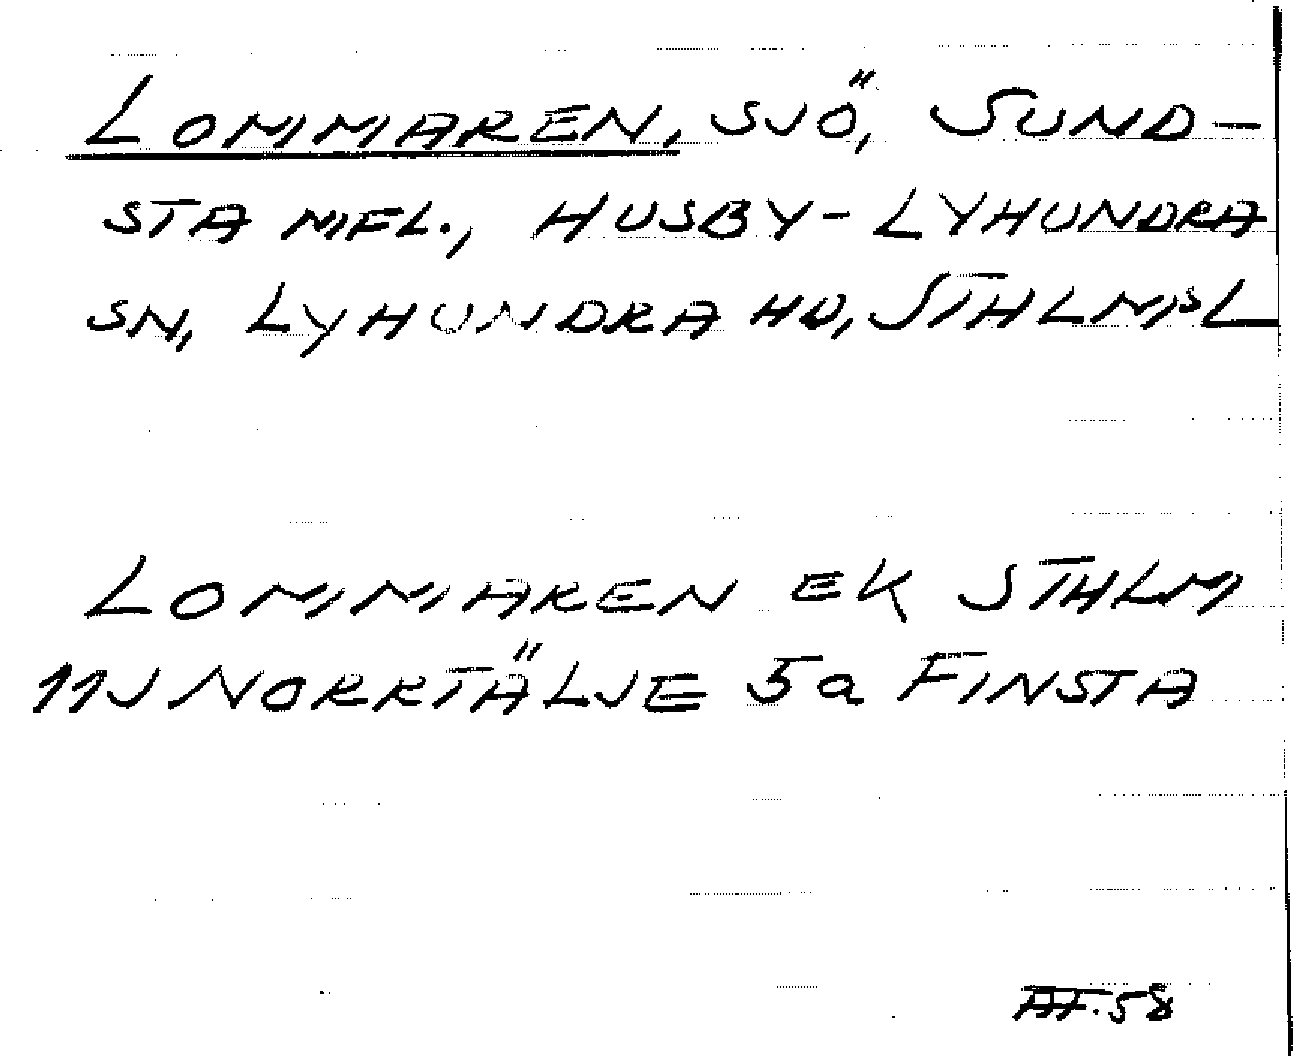 LOMMAREN, SJÖ, SUND-
STA MFL., HUSBY-LYHUNDRA
SN, LYHUNDRA HD, STHLMSL
LOMMAREN EK STHLM
11J NORRTÄLJE 5a FINSTA
AF.58